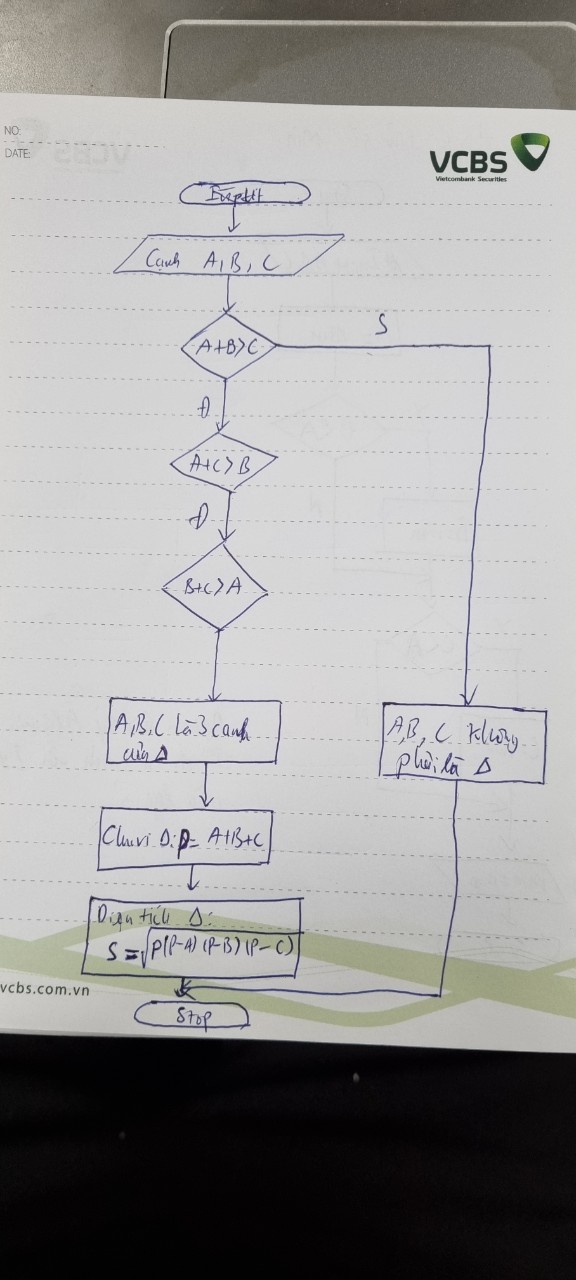 NO:
DATE:
VCBS
Vietcombank Securities
Cạnh A, B, C
A+B>C
S
Đ
A+C>B
Đ
B+C>A
A,B,C là 3 cạnh
của Δ
A,B, C không
phải là Δ
Chu vi Δ: P= A+B+C
Diện tích Δ:
S = √P(P-A)(P-B)(P-C)
vcbs.com.vn
Stop